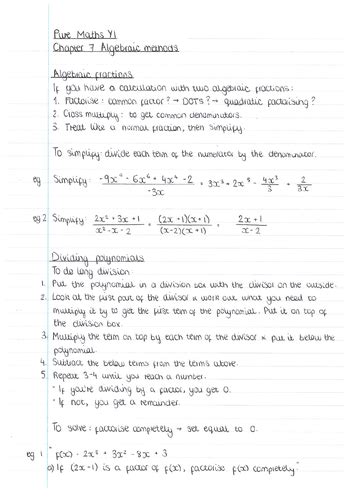 Pure Maths Y1
Chapter 7 Algebraic methods
Algebraic fractions
If you have a calculation with two algebraic fractions:
1. Factorise: common factor? → DOTS? → quadratic factorising?
2. Cross multiply: to get common denominators.
3. Treat like a normal fraction, then simplify.
To simplify: divide each term of the numerator by the denominator.
eg Simplify: (-9x⁴ - 6x⁶ + 4x⁴ - 2)/(-3x) = 3x³ + 2x⁵ - 4x³/3 + 2/3x
eg 2 Simplify: (2x² + 3x + 1)/(x² - x - 2) = (2x + 1)(x + 1)/(x-2)(x + 1) = (2x + 1)/(x - 2)
Dividing polynomials
To do long division:
1. Put the polynomial in a division box with the divisor on the outside.
2. Look at the first part of the divisor & work out what you need to
multiply it by to get the first term of the polynomial. Put it on top of
the division box.
3. Multiply the term on top by each term of the divisor & put it below the
polynomial.
4. Subtract the below terms from the terms above.
5. Repeat 3-4 until you reach a number.
· If you're dividing by a factor, you get 0.
· If not, you get a remainder.
To solve: factorise completely → set equal to 0.
eg 1 "f(x) = 2x³ + 3x² - 8x + 3
a) If (2x - 1) is a factor of f(x), factorise f(x) completely."